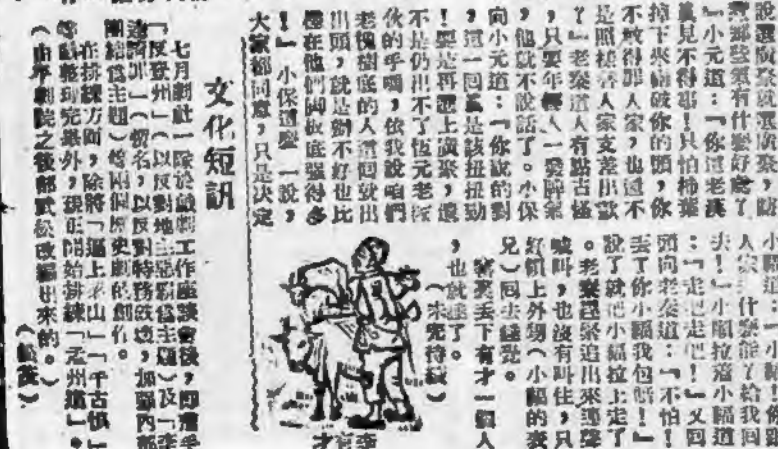 說選廣聚就選廣聚，瞎
惹那些氣有什麼好處？
」小元道：「你這老漢
真見不得事！只怕柿葉
掉下來碰破你的頭，你
不敢得罪人家，也還不
是照樣替人家支差出款
？」老秦這人有點古怪
，只要年輕人一發脾氣
，他就不說話了。小保
向小元道：「你說的對
，這一回真是該扭扭勁
！要是再選上廣聚，還
不是仍出不了恆元老家
伙的手嗎，依我說咱們
老槐樹底的人這回就出
出頭，就是辦不好也比
在他們脚板底强得多
！」小保這麼一說，
大家都同意，只是決定
小福道：「小福！你跟
人家什麼能？給我回
去！」小順拉着小福道
：「走吧走吧！」又回
頭向老秦道：「不怕！
丟了你小福我包賠！」
說了就把小福拉上走了
。老秦趕緊追出來連聲
喊叫，也沒有叫住，只
好領上外甥（小福的表
兄）回去睡覺。
窰裏丟下有才一個人
，也就睡了。
（未完待續）
李有才
文化短訊
七月劇社一隊於戲劇工作座談會後，即着手
「反登州」（以反對地主惡霸爲主題）及「李
逵」（暫名，以反對特務破壞，加強內部
團結爲主題）等兩個歷史劇的創作。
在排練方面，除將「逼上梁山」「千古恨」
等完畢外，現正開始排練「孟州道」。
（由平劇院之後部武松改編出來的。）